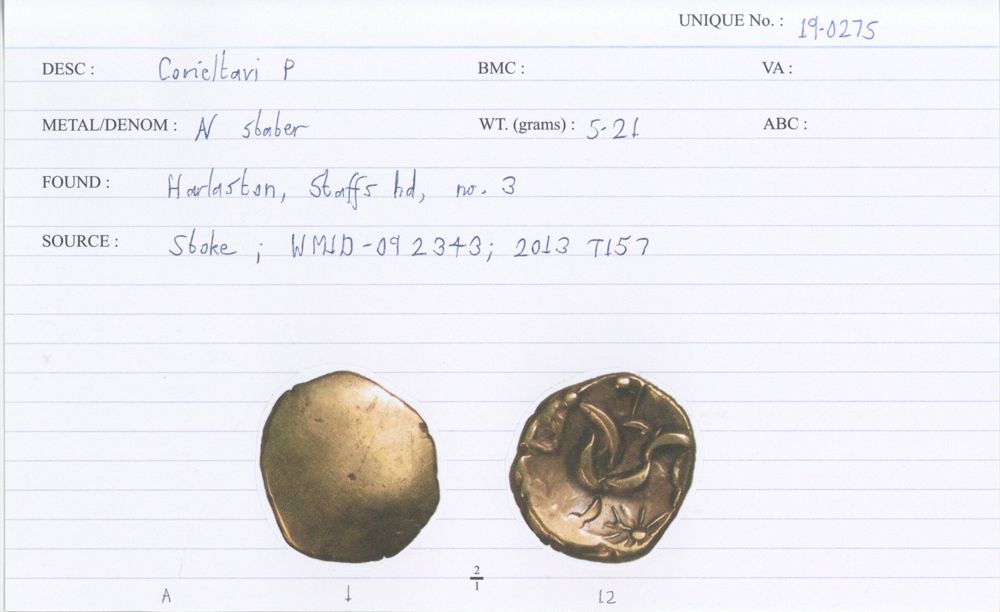 UNIQUE No. : 19-0275
DESC : Corieltavi P BMC : VA :
METAL/DENOM : N stater WT. (grams) : 5.21 ABC :
FOUND : Harlaston, Staffs hd, no. 3
SOURCE : Stoke ; WMID-092343; 2013 T157
2
1
A 1 12